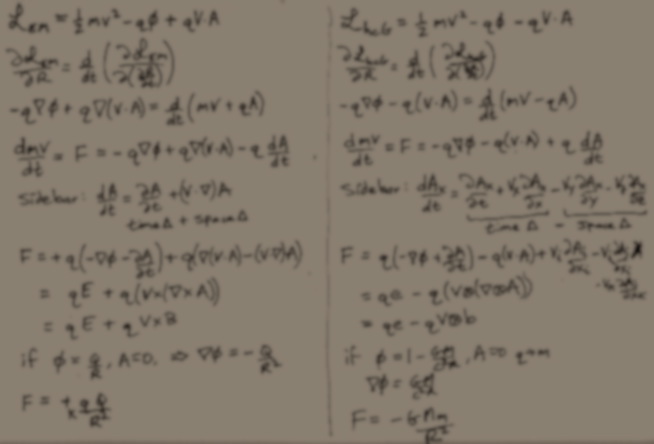 L_em = ½mv² - qφ + qV·A
∂L_em/∂R = d/dt (∂L_em/∂(dR/dt))
-q∇φ + q∇(V·A) = d/dt (mV + qA)
dmV/dt = F = -q∇φ + q∇(V·A) - q dA/dt
sidebar: dA/dt = ∂A/∂t + (V·∇)A
timeΔ + spaceΔ
F = +q(-∇φ - ∂A/∂t) + q(∇(V·A) - (V·∇)A)
= qE + q(V×(∇×A))
= qE + qV×B
if φ = Q/R, A=0, ⇒ ∇φ = -Q/R²
F = + qQ/R²
= ½mv² - qφ - qV·A
-q∇φ - q(V·A) = d/dt (mV - qA)
dmV/dt = F = -q∇φ - q(V·A) + q dA/dt
sidebar: dAx/dt = ∂Ax/∂t + Vx∂Ax/∂x - Vy∂Ax/∂y - Vz∂Ax/∂z
timeΔ - spaceΔ
F = q(-∇φ + ∂A/∂t) - q(V·A)
= qe - q(V⊗(∇⊗A))
= qe - qV⊗b
if φ = 1 - , A=0 q→m
∇φ =
F = -GMm/R²